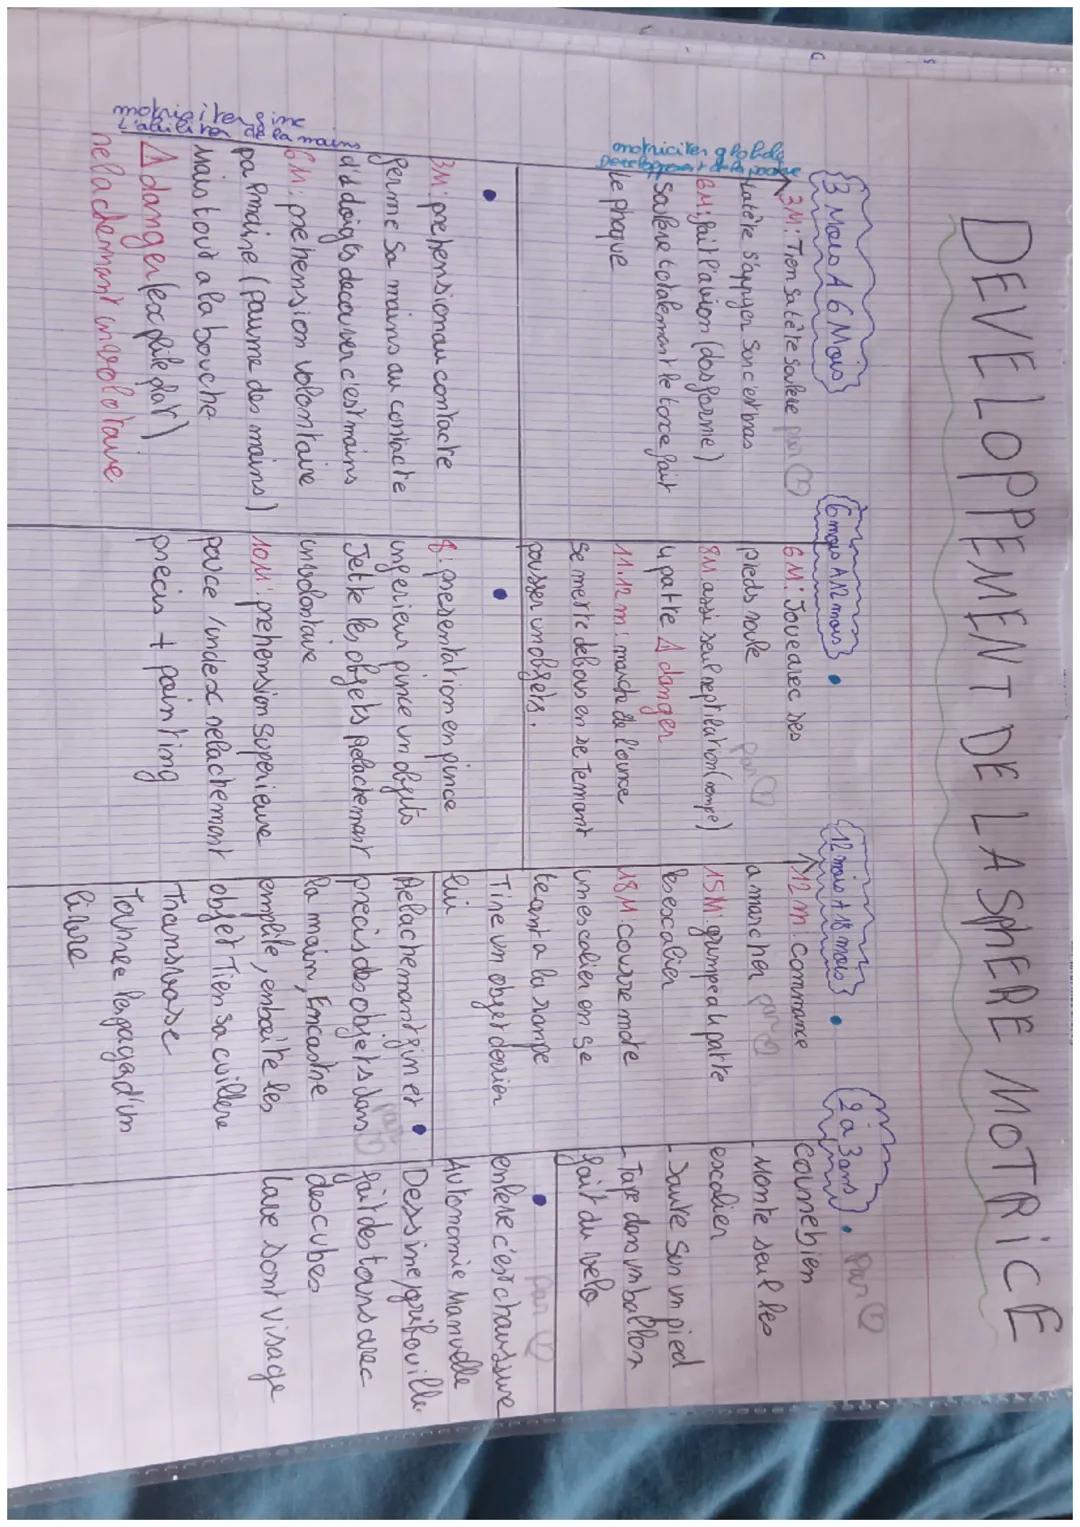 DEVELOPPEMENT DE LA SPHERE MOTRICE
3 Mois A 6 Mois
6 mois A 12 mois
12 mois A 18 mois
2 à 3 ans
motriciter globale
3M: Tien sa tète soulève
la tète s'appuyer sur c'est bras
6M: fait l'avion (dos ferme)
Soulève totalemant le torce fait
le phoque
6M: Joue avec ses
pieds roule
8M assi seul reptilation (rempe)
4 patte ⚠ danger
11.12 m: marche de l'ource
se mettre debous en se tenant
pousser un objets.
12 m. commance
a marcher
15M: grumpe a 4 patte
les escalier
18M: courre mote
un escalier en se
teant a la rampe
Tire un objet derrier
lui
Coure bien
- Monte seul les
escalier
- Saute sur un pied
- Tape dans un ballon
fait du velo
motriciter fine
L'abiliter de la mains
3M: prehension au contacte
ferme sa mains au contacte
d'2 doigts decouvre c'est mains
6M: prehension volontaire
palmaire (paume des mains)
Mais tout a la bouche
⚠ danger (ex pile plat)
relachemant involotaire
8: presentation en pince
ingerieur pince un objets
Jette les objets relachemant
involontaire
10M: prehension superieure
pouce / index relachement
precis + pointing
Relachemant fin et
precis des objets dans
la main, Emcastre
emplile, emboite les
objet Tien sa cuillere
Transvase
Tournee les pagas d'un
livre
enleve c'est chaussure
Autonomie Manuelle
Dessine/gribouille
fait des tours avec
des cubes
lave sont visage